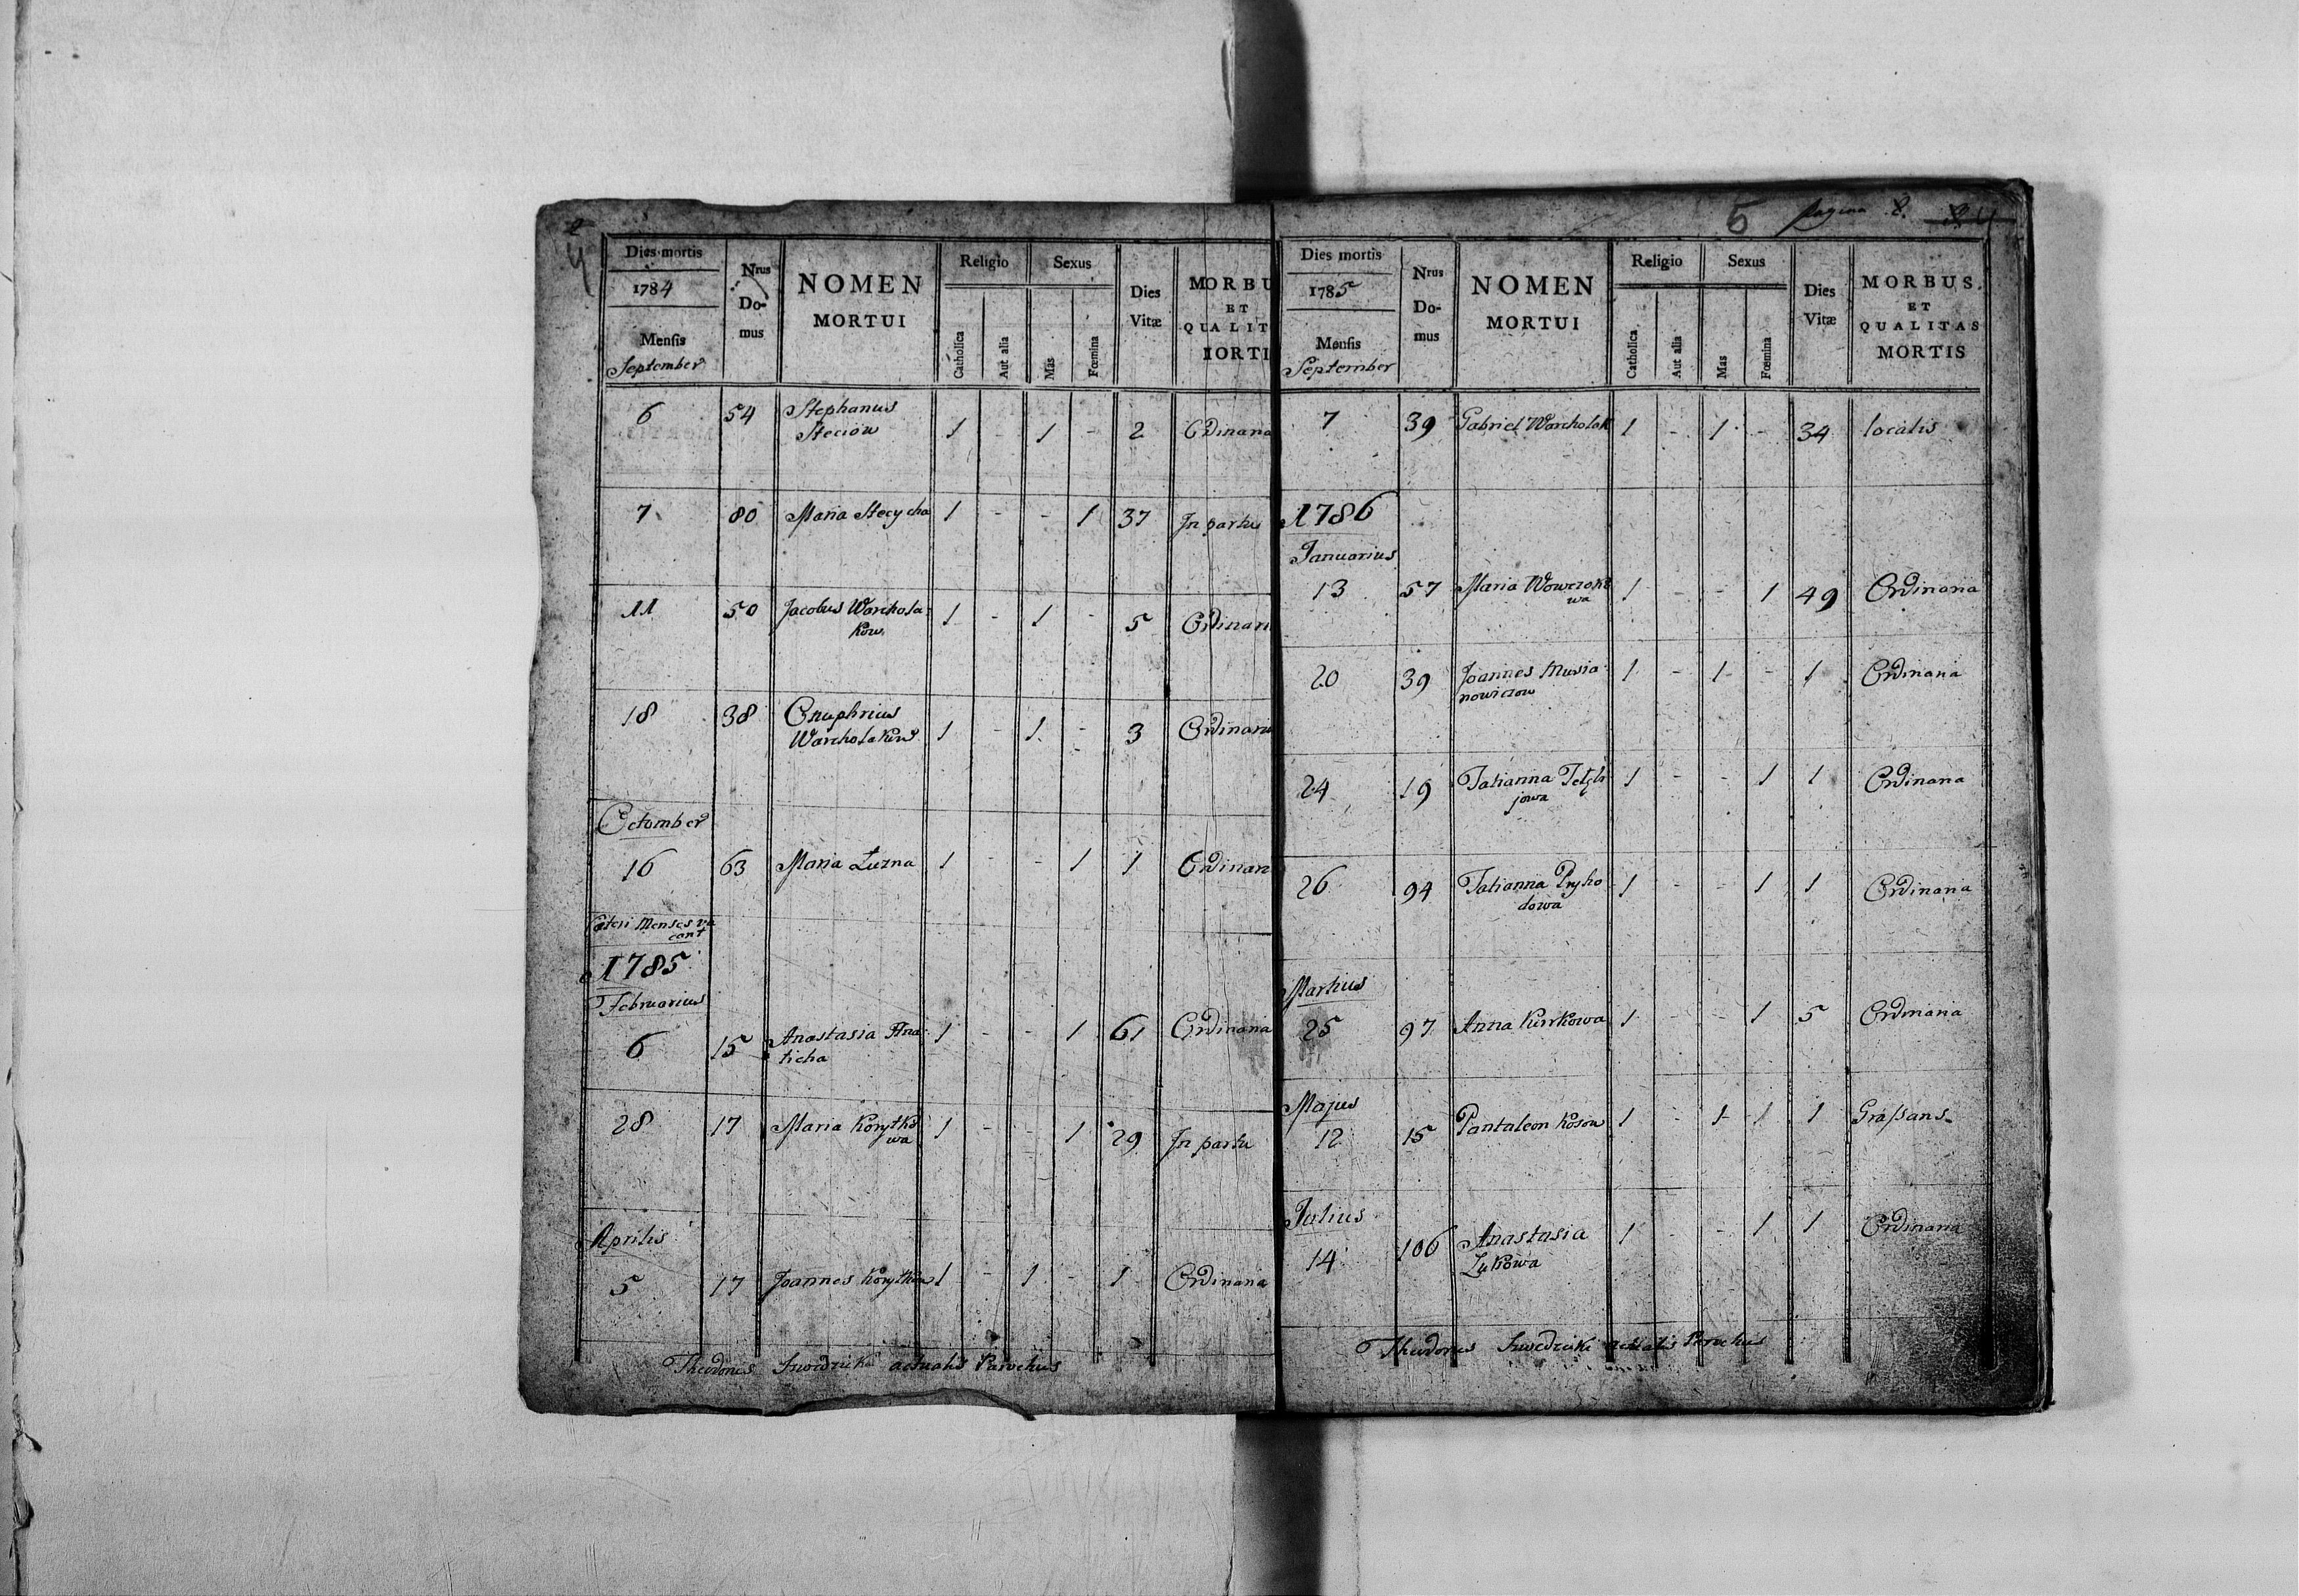 4
Dies mortis
1784
Mensis
September
Nrus
Do-
mus
NOMEN
MORTUI
Religio
Catholica
Aut alia
Sexus
Mas
Fœmina
Dies
Vitæ
MORBU
ET
QUALIT
MORTI
6 54 Stephanus
Steciow 1 - 1 - 2 Ordinaria
7 80 Maria Stecycha 1 - - 1 37 In partu
11 50 Jacobus Warchola-
kow 1 - 1 - 5 Ordinari
18 38 Onuphrius
Warcholakow 1 - 1 - 3 Ordinaria
Octomber
16 63 Maria Łuzna 1 - - 1 1 Ordinari
Cæteri Menses va
cant
1785
Februarius
6 15 Anastasia Hna
ticha 1 - - 1 61 Ordinaria
28 17 Maria Korytko
wa 1 - - 1 29 In partu
Aprilis
5 17 Joannes Korytkow 1 - 1 - 1 Ordinaria
Theodorus actualis Parochus
5 pagina 8.
Dies mortis
1785
Mensis
September
Nrus
Do-
mus
NOMEN
MORTUI
Religio
Catholica
Aut alia
Sexus
Mas
Fœmina
Dies
Vitæ
MORBUS
ET
QUALITAS
MORTIS
7 39 Gabriel Warcholak 1 - 1 - 34 localis
1786
Januarius
13 57 Maria Wowczko
wa 1 - - 1 49 Ordinaria
20 39 Joannes Musia
nowiczow 1 - 1 - 1 Ordinaria
24 19 Tatianna
jowa 1 - - 1 1 Ordinaria
26 94 Tatianna Pryho
dowa 1 - - 1 1 Ordinaria
Martius
25 97 Anna Kurkowa 1 - - 1 5 Ordinaria
Majus
12 15 Pantaleon Kosow 1 - 1 1 1 Graſsans
Julius
14 106 Anastasia
Lukowa 1 - - 1 1 Ordinaria
Theodorus actualis Parochus